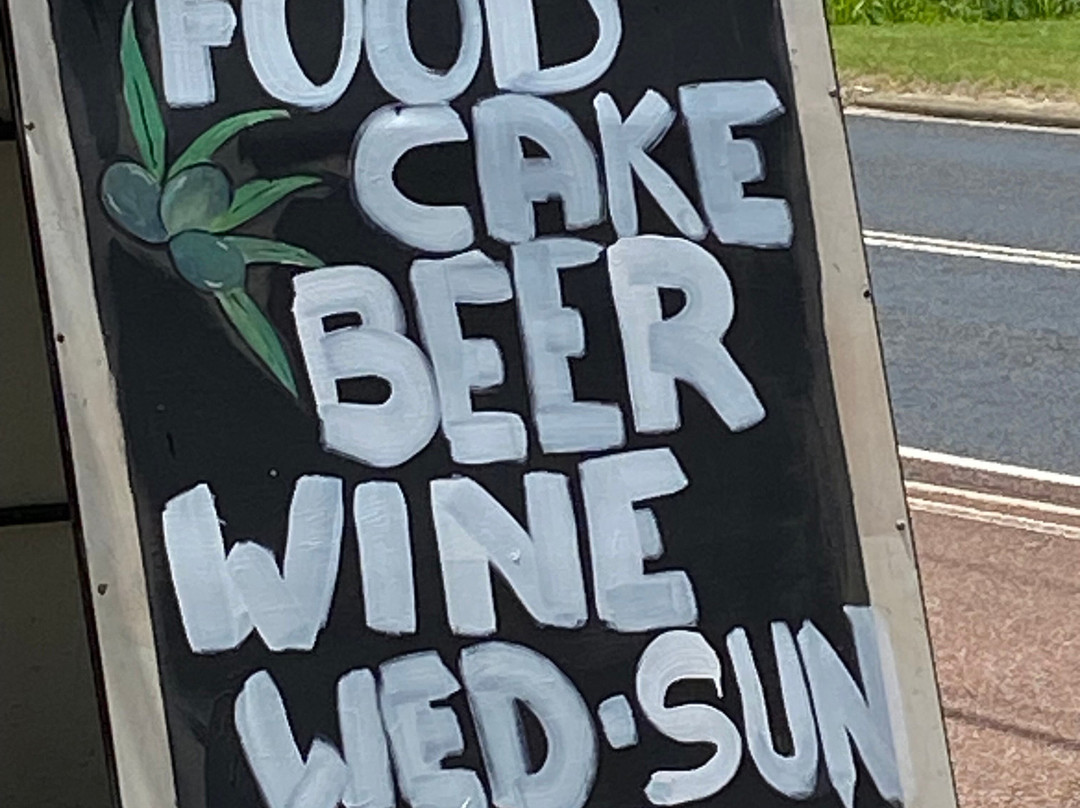 FOOD
CAKE
BEER
WINE
WED·SUN